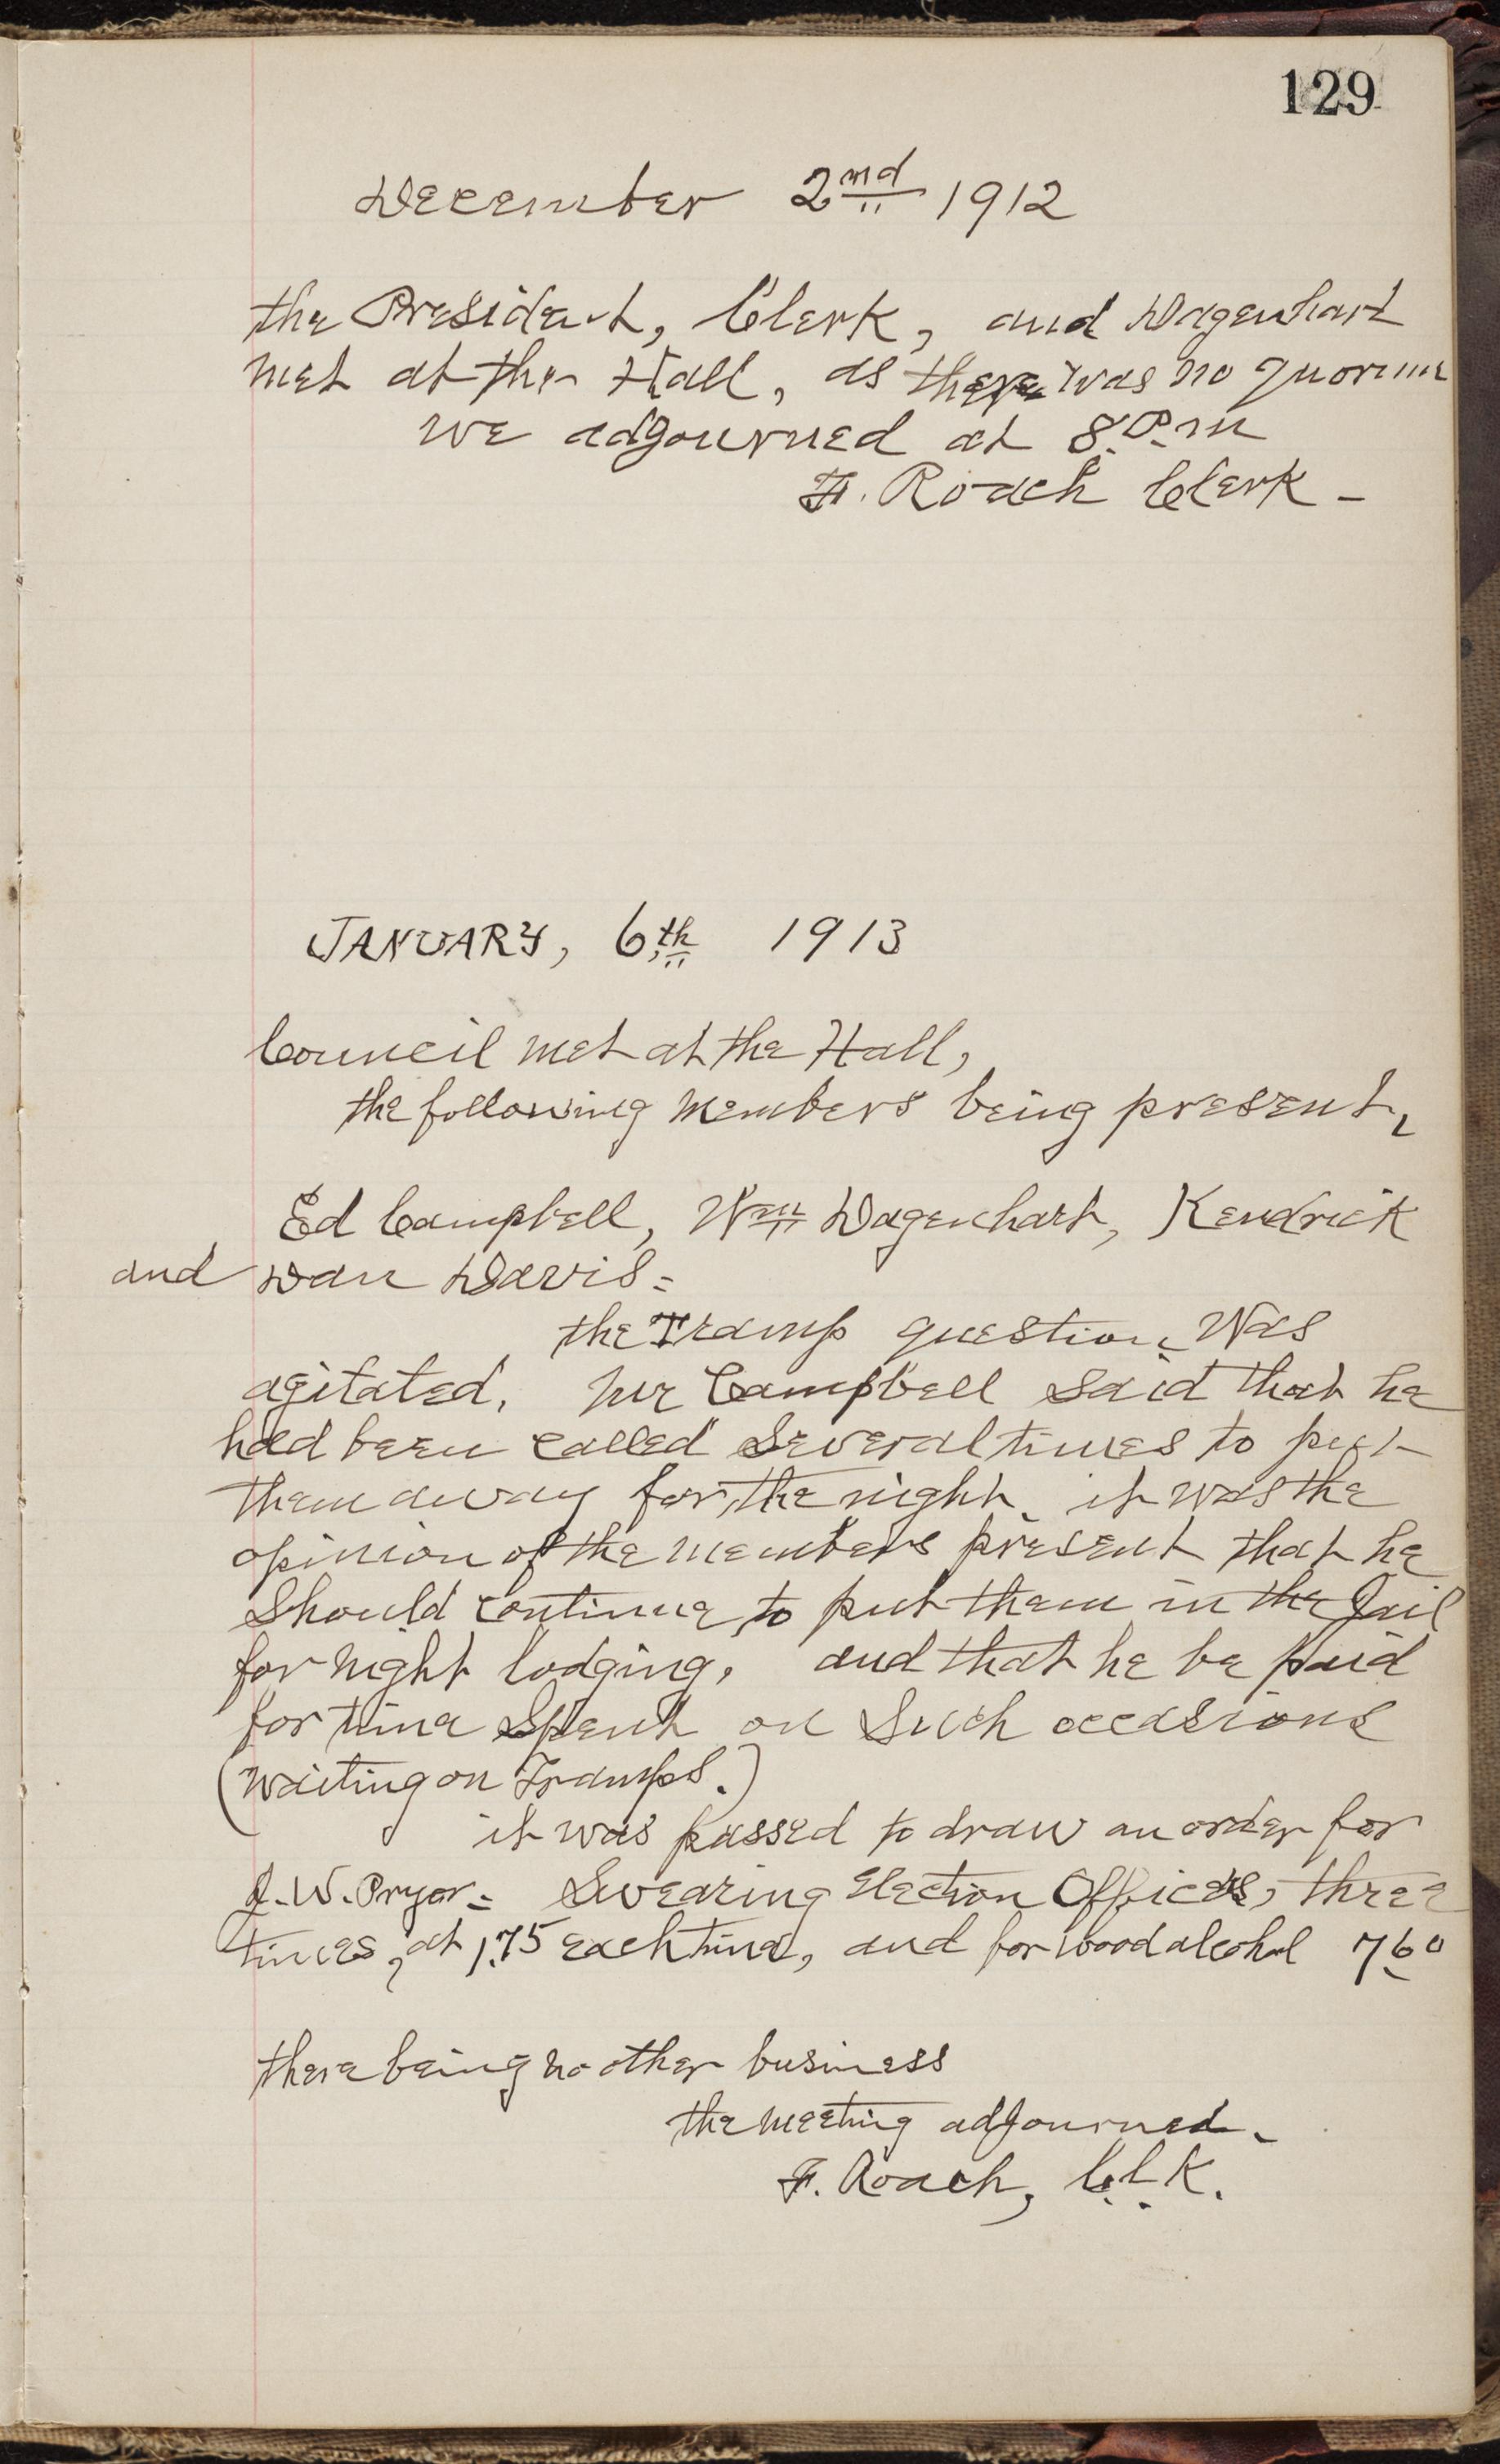 129
December 2nd 1912
the President, Clerk, and Wagenhart
met at the Hall, as there was no quorum
we adjourned at 8. P. m
F. Roach Clerk -
JANUARY, 6th 1913
Council met at the Hall,
the following members being present,
Ed Campbell, Wm Wagenhart, Kendrick
and Dan Davis =
the Tramp question was
agitated, Mr Campbell said that he
had been called several times to put
them away for the night. it was the
opinion of the members present that he
should continue to put them in the Jail
for night lodging, and that he be paid
for time spent on such occasions
(waiting on Tramps.)
it was passed to draw an order for
J. W. Pryor = Swearing Election Officers, three
times, at 1.75 each time, and for wood alcohol 7.60
there being no other business
the meeting adjourned.
F. Roach, Clk.